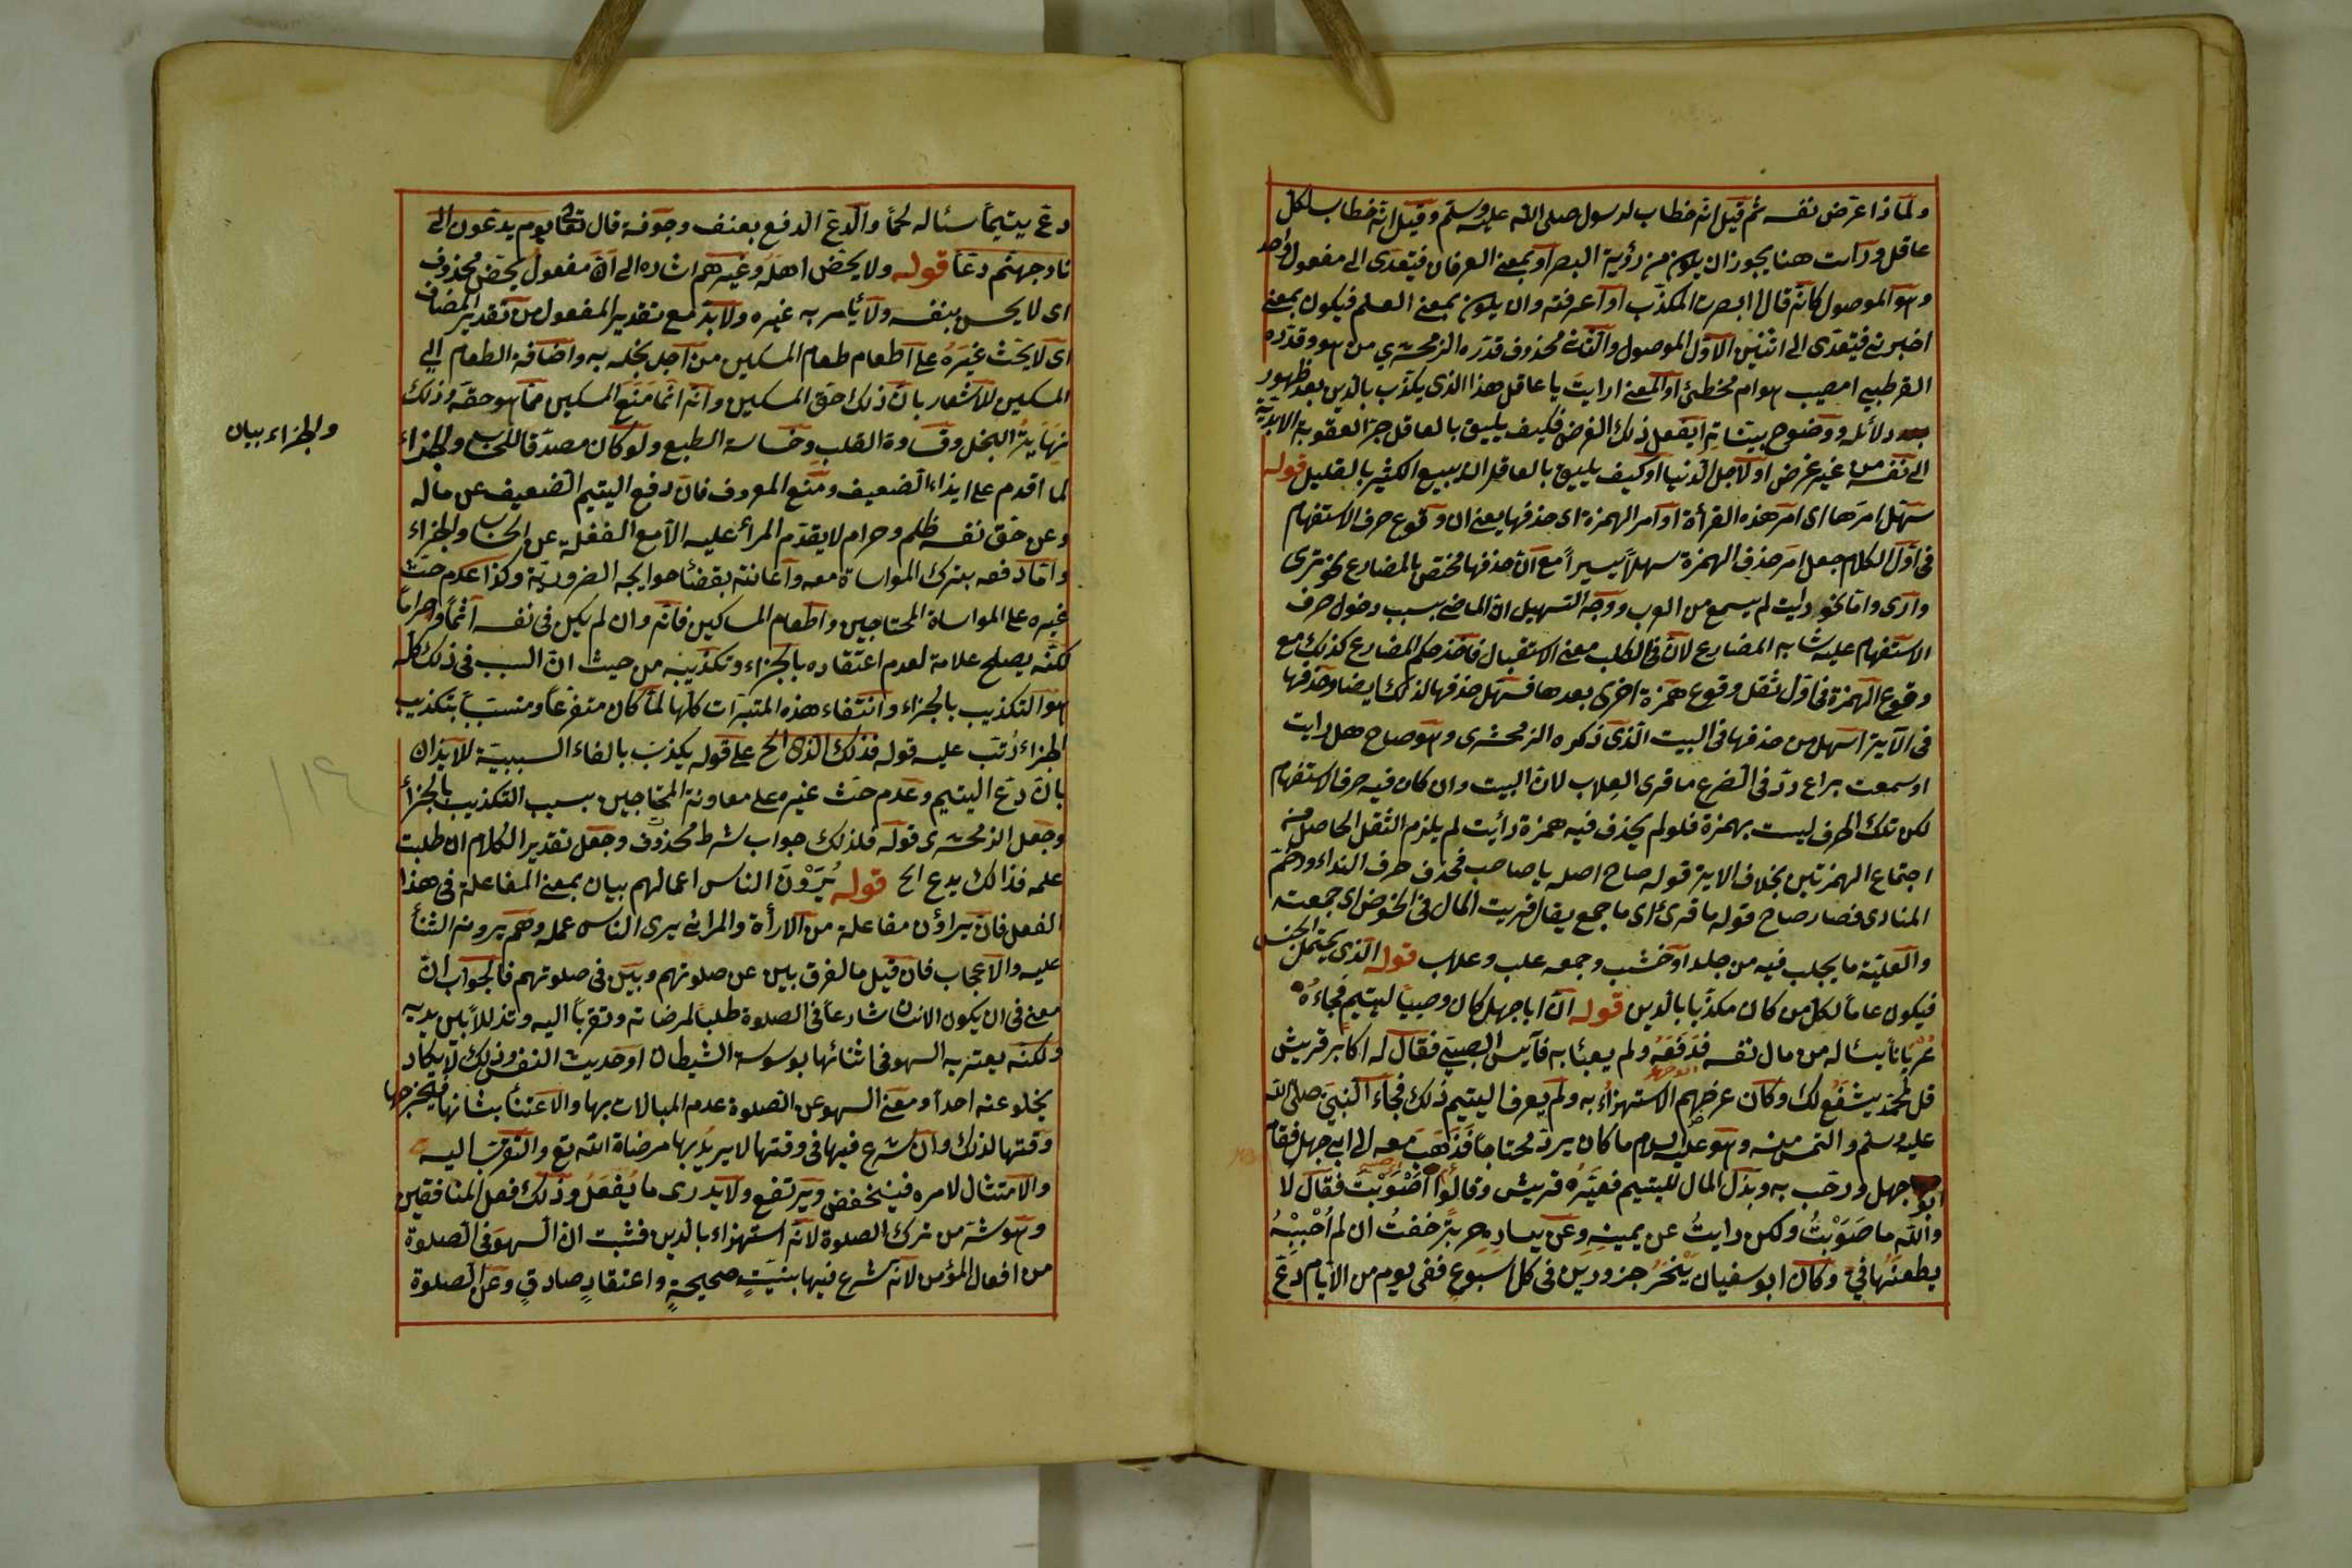 ولماذا عرّض نفسه ثم قيل انه خطاب لرسول صلى الله عليه وسلم وقيل انه خطاب لكل
عاقل ورأت هنا يجوز ان يكون من رؤية البصر او بمعنى العرفان فيتعدى الى مفعول واحد
وهو الموصول كانه قال ابصرت المكذب او اعرفته وان يكون بمعنى العلم فيكون بمعنى
اخبرني فيتعدى الى اثنين الاول الموصول والثاني محذوف قدره الزمخشري من هو وقدره
القرطبي امصيب هو ام مخطئ او المعنى ارايت يا عاقل هذا الذي يكذب بالدين بعد ظهور
دلائله ووضوح بيناته أيفعل ذلك الغرض فكيف يليق بالعاقل جرّ العقوبة الابدية
الى نفسه من غير غرض او لاجل الدنيا او كيف يليق بالعاقل ان يبيع الكثير بالقليل قوله
سهّل امرها اى امر هذه القرأة او امر الهمزة اى حذفها يعنى ان وقوع حرف الاستفهام
فى اول الكلام جعل امر حذف الهمزة سهلاً يسيراً مع ان حذفها مختص بالمضارع نحو ترى
وارى واما نحو رايت لم يسمع من العرب ووجه التسهيل ان الماضى بسبب دخول حرف
الاستفهام عليه شابه المضارع لان فى الطلب معنى الاستقبال فاخذ حكم المضارع كذلك مع
وقوع الهمزة فى اول ثقل وقوع همزة اخرى بعدها فسهل حذفها لذلك ايضا وحذفها
فى الآية اسهل من حذفها فى البيت الذى ذكره الزمخشرى وهو صاح هل رايت
او سمعت براع ردّ فى الضرع ما قرى العلاب لان البيت وان كان فيه حرف الاستفهام
لكن تلك الحرف ليست بهمزة فلو لم يحذف فيه همزة رأيت لم يلزم الثقل الحاصل من
اجتماع الهمزتين بخلاف الاية قوله صاح اصله يا صاحب فحذف حرف النداء ورخّم
المنادى فصار صاح قوله ما قرى اى ما جمع يقال قريت المال فى الحوض اى جمعت
والعلبة ما يحلب فيه من جلد او خشب وجمعه علب وعلاب قوله الذى يحتمل الجنس
فيكون عاماً لكل من كان مكذبا بالدين قوله ان ابا جهل كان وصيا ليتيم فجاءه
عرياناً يسئاله من مال نفسه فدفعه ولم يعبئا به فآيس الصبى فقال له اكابر قريش
قل لمحمد يشفع لك وكان غرضهم الاستهزاء به ولم يعرف اليتيم ذلك فجاء النبى صلى الله
عليه وسلم والتمس منه وهو عليه السلام ما كان يردّ محتاجا فذهب معه الى ابى جهل فقام
ابو جهل ورحّب به وبذل المال لليتيم فعيّره قريش وقالوا اصَبَوْتَ فقال لا
والله ما صَبَوْتُ ولكن رايتُ عن يمينه وعن يساره حربة خفتُ ان لم اُجِبْهُ
يطعنها فيّ وكان ابو سفيان ينحرُ جزورين فى كل اسبوع ففى يوم من الايام دعّ
دعّ يتيماً سئاله لحما والدعّ الدفع بعنف وجفوة قال تعالى يوم يدعّون الى
نار جهنم دعّا قوله ولا يحضّ اهله وغيرهم اشاره الى ان مفعول يحضّ محذوف
اى لا يحسن بنفسه ولا يأمر به غيره ولا بدّ مع تقدير المفعول من تقدير المضاف
اى لا يحثّ غيره على اطعام طعام المسكين من اجل بخله به واضافة الطعام الى
المسكين للاشعار بان ذلك احق المسكين وانه انما منع المسكين مما هو حقه وذلك
نهاية البخل وقساوة القلب وخساسة الطبع ولو كان مصدقا للحساب والجزاء
لما اقدم على ايذاء الضعيف ومنع المعروف فان دفع اليتيم الضعيف عن ماله
وعن حق نفسه ظلم وحرام لا يقدم المرأ عليه الا مع الغفلة عن الحساب والجزاء
واما دفعه بترك المواساة معه واعانته بقضأ حوايجه الضرورية وكذا عدم حثّ
غيره على المواساة المحتاجين واطعام المساكين فانه وان لم يكن فى نفسه اثماً وحراماً
لكنه يصلح علامة لعدم اعتقاده بالجزاء وتكذيبه من حيث ان السبب فى ذلك كله
هو التكذيب بالجزاء وانتفاء هذه المتبرات كلها لما كان متفرعا ومنسبّباً بتكذيب
الجزاء رُتب عليه قوله فذلك الذى الخ على قوله يكذب بالفاء السببية للايذان
بان دعّ اليتيم وعدم حثّ غيره على معاونة المحتاجين بسبب التكذيب بالجزأ
وجعل الزمخشرى قوله فلذلك جواب شرط محذوف وجعل تقدير الكلام ان طلبت
علمه فذالك يدع الخ قوله يُرَوْنَ الناس اعمالهم بيان بمعنى المفاعلة فى هذا
الفعل فان يراؤن مفاعلة من الارأة والمرائى يرى الناس عمله وهم يرونه الثنأ
عليه والاعجاب فان قيل ما الفرق بين عن صلوتهم وبين فى صلوتهم فالجواب ان
معنى فى ان يكون الانسان شارعاً فى الصلوة طلباً لمرضاته وتقرباً اليه وتذللاً بين يديه
ولكنه يعتريه السهو فى اثنائها بوسوسة الشيطان او حديث النفس وذلك لا يكاد
يخلو عنه احداً ومعنى السهو عن الصلوة عدم المبالات بها والاعتنأ بشانها فيخرجها
وقتها لذلك وان شرع فيها فى وقتها لا يريد بها مرضاة الله تع والتقرب اليه
والامتثال لامره فينخفض ويرتفع ولا يدرى ما يفعل وذلك فعل المنافقين
وهو شرّ من ترك الصلوة لانه استهزاء بالدين فثبت ان السهو فى الصلوة
من افعال المؤمن لانه شرع فيها بنيّةٍ صحيحةٍ واعتقادٍ صادقٍ وعن الصلوة
والجزاء بيان